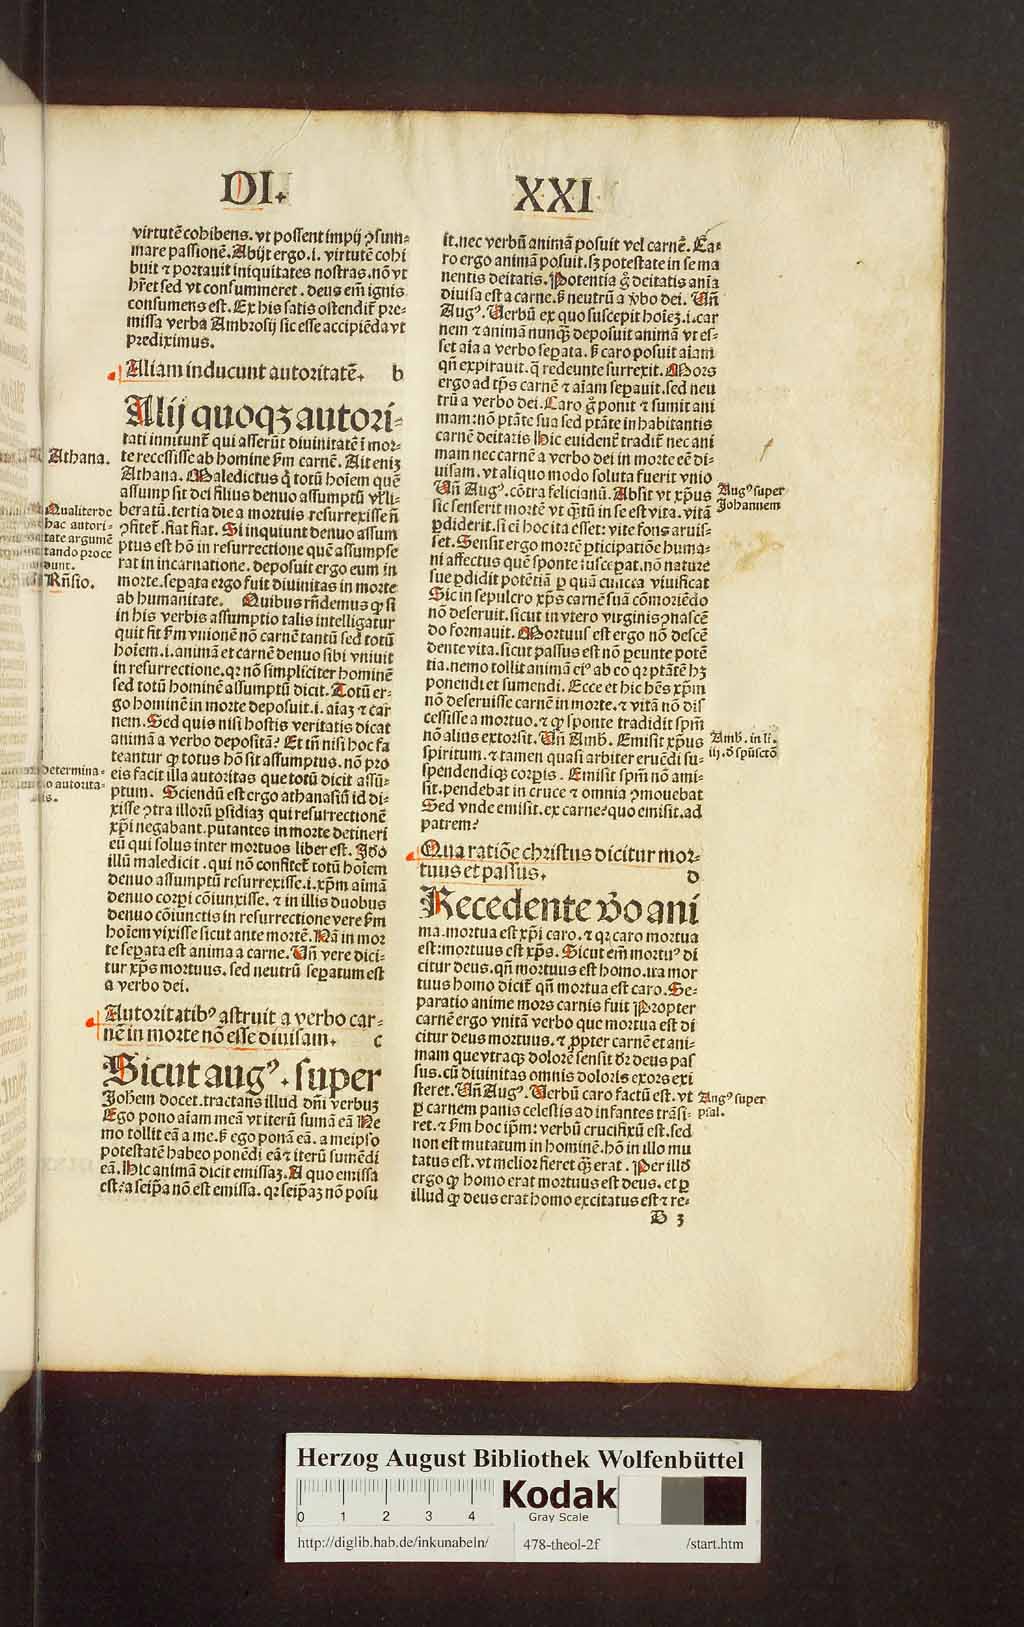 DI. XXI
virtutē cohibens. vt possent impij ꝯsum-
mare passionē. Abijt ergo .i. virtutē cohi
buit ⁊ portauit iniquitates nostras. nō vt
hr̄et sed vt consummeret. deus em̄ ignis
consumens est. Ex his satis ostendit᷑ pre-
missa verba Ambrosij sic esse accipiēda vt
prediximus.
Aliam inducunt autoritatē. b
Alij quoqꝫ autori-
tati innitunt᷑ qui asserūt diuinitatē ī mor-
te recessisse ab homine ẜm carnē. Ait eniꝫ
Athana. Maledictus q̇ totū hoīem quē
assumpsit dei filius denuo assumptū vl̓ li-
beratū. tertia die a mortuis resurrexisse nō
ꝯfitet᷑. fiat fiat. Si inquiunt denuo assum
ptus est hō in resurrectione quē assumpse
rat in incarnatione. deposuit ergo eum in
morte. seꝑata ergo fuit diuinitas in morte
ab humanitate. Quibus rn̄demus ꝙ si
in his verbis assumptio talis intelligatur
quit fit ẜm vnionē nō carnē tantū sed totū
hoīem .i. animā et carnē denuo sibi vniuit
in resurrectione. qꝛ nō simpliciter hominē
sed totū hominē assumptū dicit. Totū er-
go hominē in morte deposuit .i. aīaꝫ ⁊ car
nem. Sed quis nisi hostis veritatis dicat
animā a verbo depositā? Et tn̄ nisi hoc fa
teantur ꝙ totus hō sit assumptus. nō pro
eis facit illa autoritas que totū dicit assū-
ptum. Sciendū est ergo athanasiū id di-
xisse ꝯtra illorū ꝑfidiaꝫ qui resurrectionē
xp̄i negabant. putantes in morte detineri
eū qui solus inter mortuos liber est. Ideo
illū maledicit. qui nō confitet᷑ totū hoīem
denuo assumptū resurrexisse .i. xp̄m aīmā
denuo corꝑi cōiunxisse. ⁊ in illis duobus
denuo cōiunctis in resurrectione vere ẜm
hoīem vixisse sicut ante mortē. Nā in mor
te seꝑata est anima a carne. Vn̄ vere dici-
tur xp̄s mortuus. sed neutrū seꝑatum est
a verbo dei.
Autoritatibꝰ astruit a verbo car-
nē in morte nō esse diuisam. c
Sicut augꝰ. super
Johem docet. tractans illud dn̄i verbuꝫ
Ego pono aīam meā vt iterū sumā eā Ne
mo tollit eā a me. ẜ ego ponā eā. a meipso
potestatē habeo ponēdi eā ⁊ iterū sumēdi
eā. Hic animā dicit emissaꝫ. A quo emissa
est? a seip̄a nō est emissa. qꝛ seip̄aꝫ nō posu
it. nec verbū animā posuit vel carnē. Ca-
ro ergo animā posuit. sꝫ potestate in se ma
nentis deitatis. Potentia g̊ deitatis anīa
diuisa est a carne. ẜ neutrū a v̓bo dei. Vn̄
Augꝰ. Verbū ex quo suscepit hoīeꝫ .i. car
nem ⁊ animā nunqꝫ deposuit animā vt es-
set aīa a verbo seꝑata. ẜ caro posuit aīam
qn̄ expirauit. q̄ redeunte surrexit. Mors
ergo ad tp̄s carnē ⁊ aīam seꝑauit. sed neu
trū a verbo dei. Caro g̊ ponit ⁊ sumit ani
mam: nō ptāte sua sed ptāte inhabitantis
carnē deitatis Hic euidenter tradit᷑ nec ani
mam nec carnē a verbo dei in morte eē di-
uisam. vt aliquo modo soluta fuerit vnio
Vn̄ Augꝰ. cōtra felicianū. Absit vt xp̄us
sic senserit mortē vt q̄tū in se est vita. vitā
ꝑdiderit. si ei hoc ita esset: vite fons aruis-
set. Sensit ergo mortē ꝑticipatiōe huma-
ni affectus quē sponte susceꝑat. nō nature
sue ꝑdidit potētiā ꝑ quā cuncta viuificat
Sic in sepulcro xp̄s carnē suā cōmoriēdo
nō deseruit. sicut in vtero virginis ꝯnascē
do formauit. Mortuus est ergo nō descē
dente vita. sicut passus est nō ꝑeunte potē
tia. nemo tollit animā eiꝰ ab eo qꝛ ptātē hꝫ
ponendi et sumendi. Ecce et hic hēs xp̄m
nō deseruisse carnē in morte. ⁊ vitā nō dis
cessisse a mortuo. ⁊ ꝙ sponte tradidit sp̄m
nō alius extorsit. Vn̄ Amb. Emisit xp̄us
spiritum. ⁊ tamen quasi arbiter eruēdi su-
spendendiqꝫ corꝑis. Emisit sp̄m nō ami-
sit. pendebat in cruce ⁊ omnia ꝯmouebat
Sed vnde emisit. ex carne? quo emisit. ad
patrem?
Qua ratiōe christus dicitur mor-
tuus et passus. d
Recedente v̓o ani
ma. mortua est xp̄i caro. ⁊ qꝛ caro mortua
est: mortuus est xp̄s. Sicut em̄ mortuꝰ di
citur deus. qn̄ mortuus est homo. ita mor
tuus homo dicit᷑ qn̄ mortua est caro. Se-
paratio anime mors carnis fuit Propter
carnē ergo vnitā verbo que mortua est di
citur deus mortuus. ⁊ ꝓpter carnē et ani-
mam que vtraqꝫ dolorē sensit dr̄ deus pas
sus. cū diuinitas omnis doloris exors exi
steret. Vn̄ Augꝰ. Verbū caro factū est. vt
ꝑ carnem panis celestis ad infantes trāsi-
ret. ⁊ ẜm hoc ip̄m: verbū crucifixū est. sed
non est mutatum in hominē. hō in illo mu
tatus est. vt melior fieret qꝫ erat. Per illd̄
ergo ꝙ homo erat mortuus est deus. et ꝑ
illud ꝙ deus erat homo excitatus est ⁊ re-
D 3
Athana.
Qualiter de
hac autori-
tate argumē
tando proce
dunt.
Rn̄sio.
Determina-
o autorita-
tis.
Augꝰ super
Johannem
Amb. in li.
iij. d̓ sp̄uscto
Augꝰ super
psal.
Herzog August Bibliothek Wolfenbüttel
0 1 2 3 4
Kodak
Gray Scale
http://diglib.hab.de/inkunabeln/ 478-theol-2f /start.htm